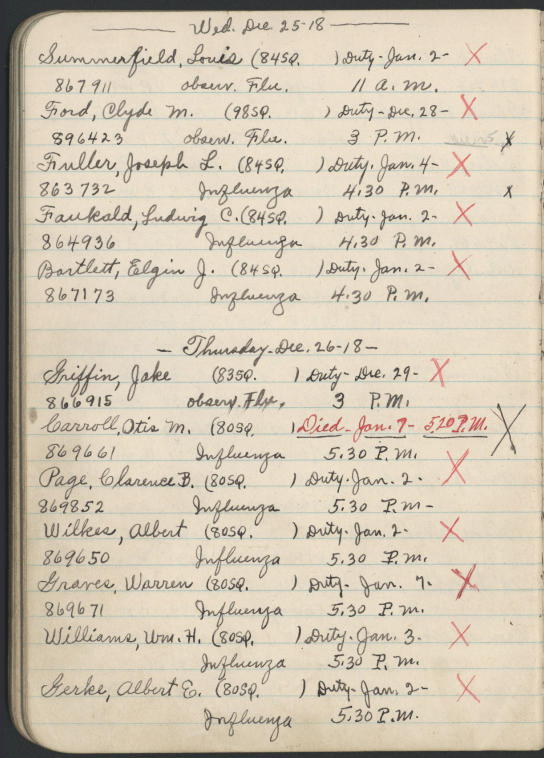 Wed. Dec. 25-18
Summerfield, Louis (84SQ. ) Duty-Jan. 2- X
867911 observ. Flu. 11 A.M.
Ford, Clyde M. (98SQ. ) Duty-Dec. 28- X
896423 observ. Flu. 3 P.M. X
Fuller, Joseph L. (84SQ. ) Duty. Jan. 4- X
863732 Influenza 4.30 P.M. X
Faukald, Ludwig C. (84SQ. ) Duty. Jan. 2- X
864936 Influenza 4.30 P.M.
Bartlett, Elgin J. (84SQ. ) Duty. Jan. 2- X
867173 Influenza 4.30 P.M.
- Thursday-Dec. 26-18-
Griffin, Jake (83SQ. ) Duty-Dec. 29- X
866915 observ. Flu. 3 P.M.
Carroll, Otis M. (80SQ. ) Died-Jan. 7- 5.20 P.M. X
869661 Influenza 5.30 P.M.
Page, Clarence B. (80SQ. ) Duty-Jan. 2- X
869852 Influenza 5.30 P.M-
Wilkes, Albert (80SQ. ) Duty-Jan. 2- X
869650 Influenza 5.30 P.M.
Graves, Warren (80SQ. ) Duty-Jan. 7- X
869671 Influenza 5.30 P.M.
Williams, Wm. H. (80SQ. ) Duty-Jan. 3- X
Influenza 5.30 P.M.
Gerke, Albert E. (80SQ. ) Duty-Jan. 2- X
Influenza 5.30 P.M.